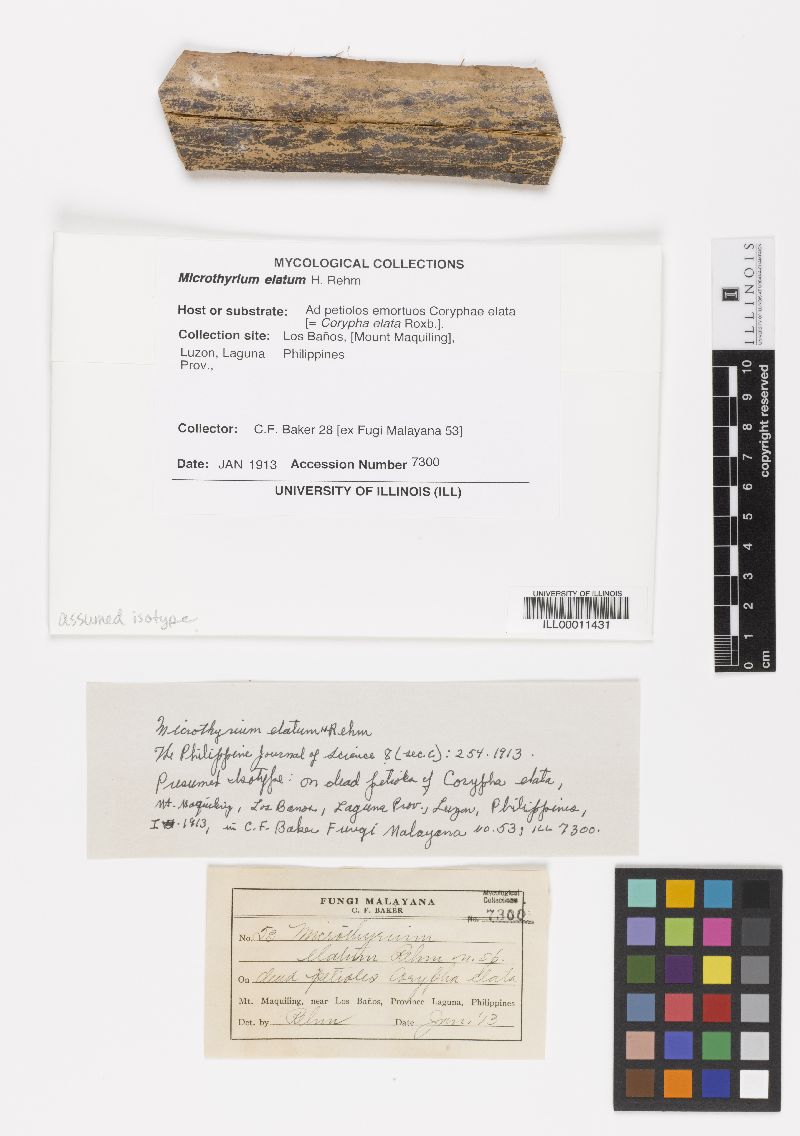 MYCOLOGICAL COLLECTIONS
Microthyrium elatum H. Rehm
Host or substrate: Ad petiolos emortuos Coryphae elata
[= Corypha elata Roxb.].
Collection site: Los Baños, [Mount Maquiling],
Luzon, Laguna Philippines
Prov.,
Collector: C.F. Baker 28 [ex Fugi Malayana 53]
Date: JAN 1913 Accession Number 7300
UNIVERSITY OF ILLINOIS (ILL)
assumed isotype
UNIVERSITY OF ILLINOIS
ILL00011431
ILLINOIS
0 1 2 3 4 5 6 7 8 9 10
cm
copyright reserved
Microthyrium elatum H. Rehm
The Philippine Journal of Science 8 (sec. C): 254. 1913.
Presumed Isotype: on dead petioles of Corypha elata,
Mt. Maquiling, Los Banos, Laguna Prov., Luzon, Philippines,
I. 1913, in C.F. Baker Fungi Malayana no. 53; ILL 7300.
FUNGI MALAYANA
C. F. BAKER
Mycological
Collections
No. 7300
No. 53 Microthyrium
elatum Rehm n. sp.
On dead petioles Corypha elata
Mt. Maquiling, near Los Baños, Province Laguna, Philippines
Det. by Rehm Date Jan. '13